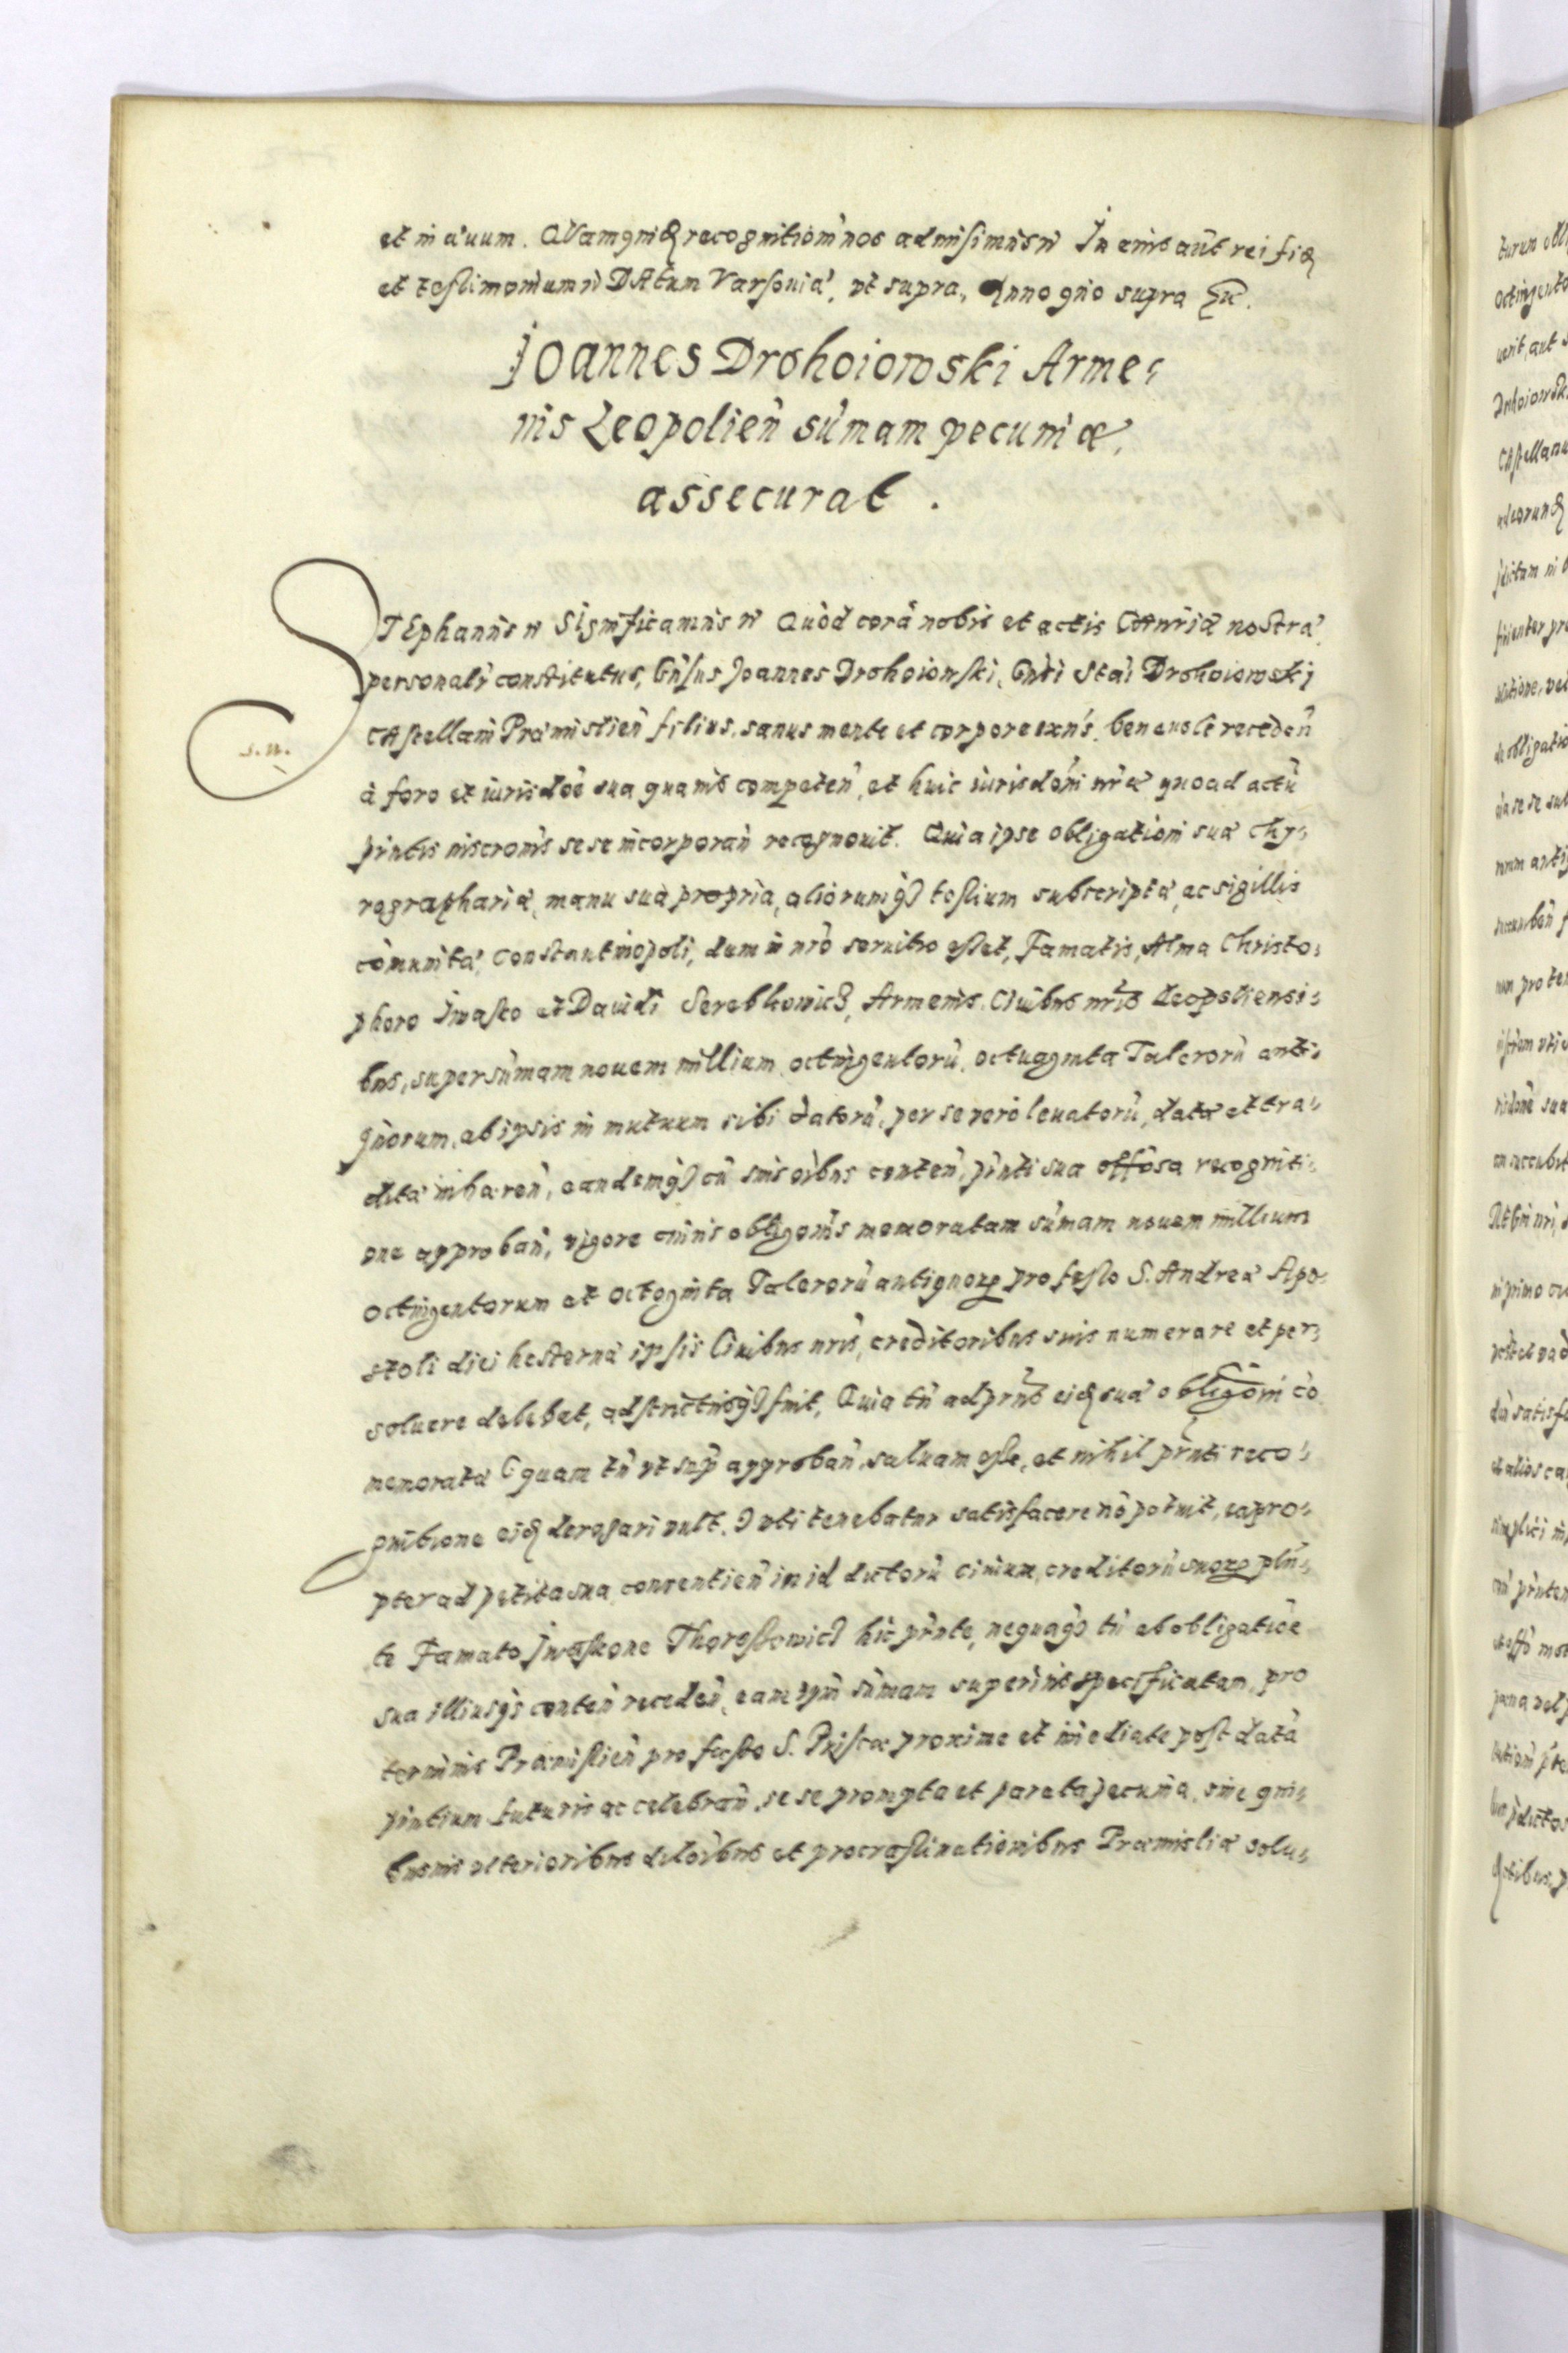 et in æuum. Quamquid recognition̄ nos admisimus n̄ In cuius aūt rei fid
et testimonium n̄ DAtum Varsouiæ, vt supra, Anno quo supra
Joannes Drohoiowski Arme:
nis Leopolien̄ sum̄am pecuniæ,
assecurat.
STEphanus n̄ Significamus n̄ Quod corā nobis et actis CAnr̄iæ nostræ
personalr̄ constitutus, Gn̄sus Joannes Drohoiowski, Gn̄ti Stai Drohoiowski
CAstellani Præmislien̄ filius, sanus mente et corpore exn̄s, beneuole receden̄
s.n.
à foro et iurisdōe sua quauis competen̄, et huic iurisdōni nr̄æ quoad actū
pn̄tis inscronis sese incorporan̄ recognouit. Quia ipse obligationi suæ Chy:
rographariæ, manu sua propria, aliorumq testium subscriptæ, ac sigillis
com̄unitæ, Constantinopoli, dum in nrō seruitio esset, Famatis, Alma Christo:
phoro Iwasko et Dauidi Serebkowicz, Armenis, Ciuibus nrīs Leopoliensi:
bus, super sum̄am nouem millium octingentorū, octuaginta Talerorū anti:
quorum, ab ipsis in mutuum sibi datorū, per se verò leuatorū, datæ et tra:
ditæ inhæren̄, eandemq cū suis oībus conten̄, pn̄ti sua offōsa recogniti:
one approban̄, vigore cuius obligonis memoratam sum̄am nouem millium
octingentorum et octoginta Talerorū antiquorp pro festo S. Andreæ Apo:
stoli diei hesternæ ipsis Ciuibus nrīs, creditoribus suis numerare et per:
soluere debebat, adstrictusq fuit, Quia tn̄ ad prn̄s eid suæ obligoni cō
memoratæ (quam tn̄ vt supra approban̄ saluam esse, et nihil prn̄ti reco:
gnitione eid derogari vult.) vti tenebatur satisfacere nō potuit, eapro:
pter ad petita sua, consentien̄ in id dictorū ciuium, creditorū suorp pln̄:
te Famato Iwaskone Thorossowicz hic prn̄te, nequaq tn̄ ab obligatiōe
sua illiusq conten̄ receden̄, eam ipm̄ sum̄am superius specificatam, pro
terminis Præmislien̄ pro festo S. Priscæ proxime et im̄ediate post datā
pn̄tium futuris ac celebran̄, sese prompta et parata pecunia, sine qui:
busuis vlterioribus dilōibus et procrastinationibus Præmisliæ solu: